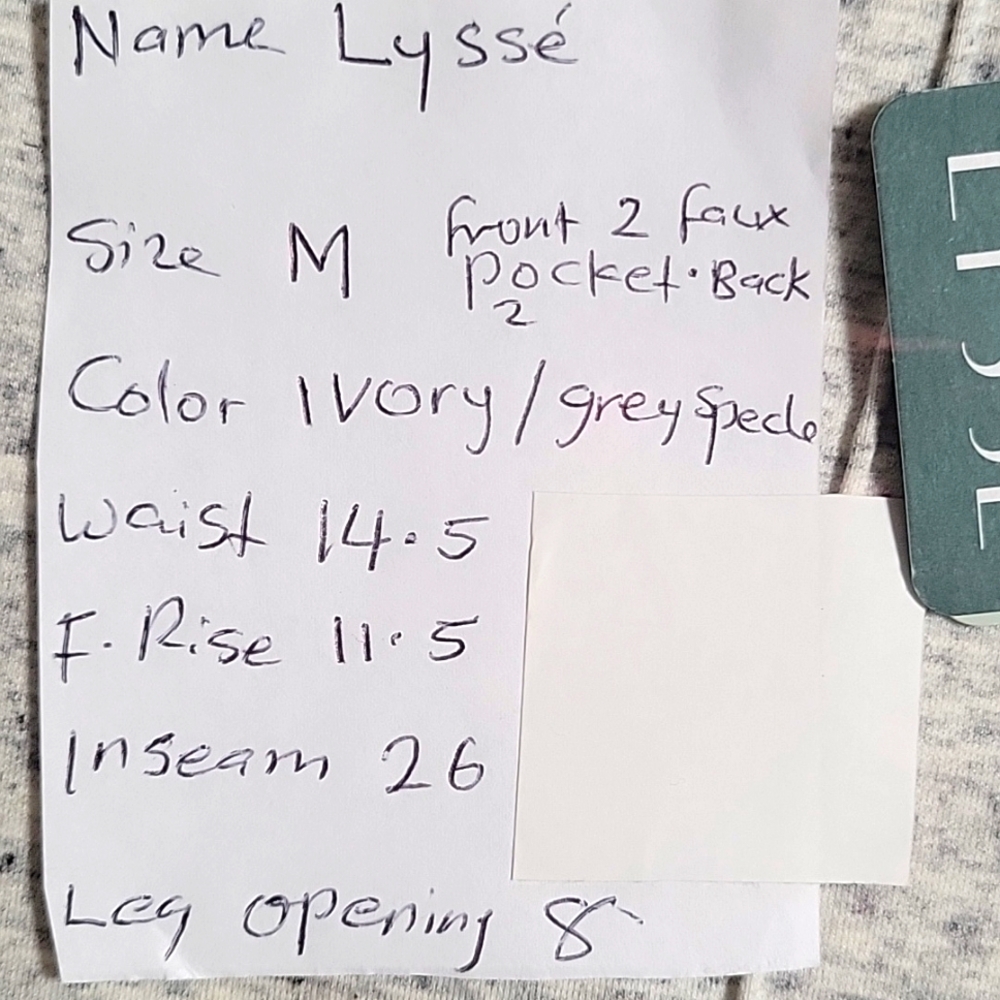 Name Lyssé
Size M
front 2 faux
pocket. Back
2
Color Ivory/grey specle
Waist 14.5
F. Rise 11.5
Inseam 26
Leg opening 8
LYSSÉ